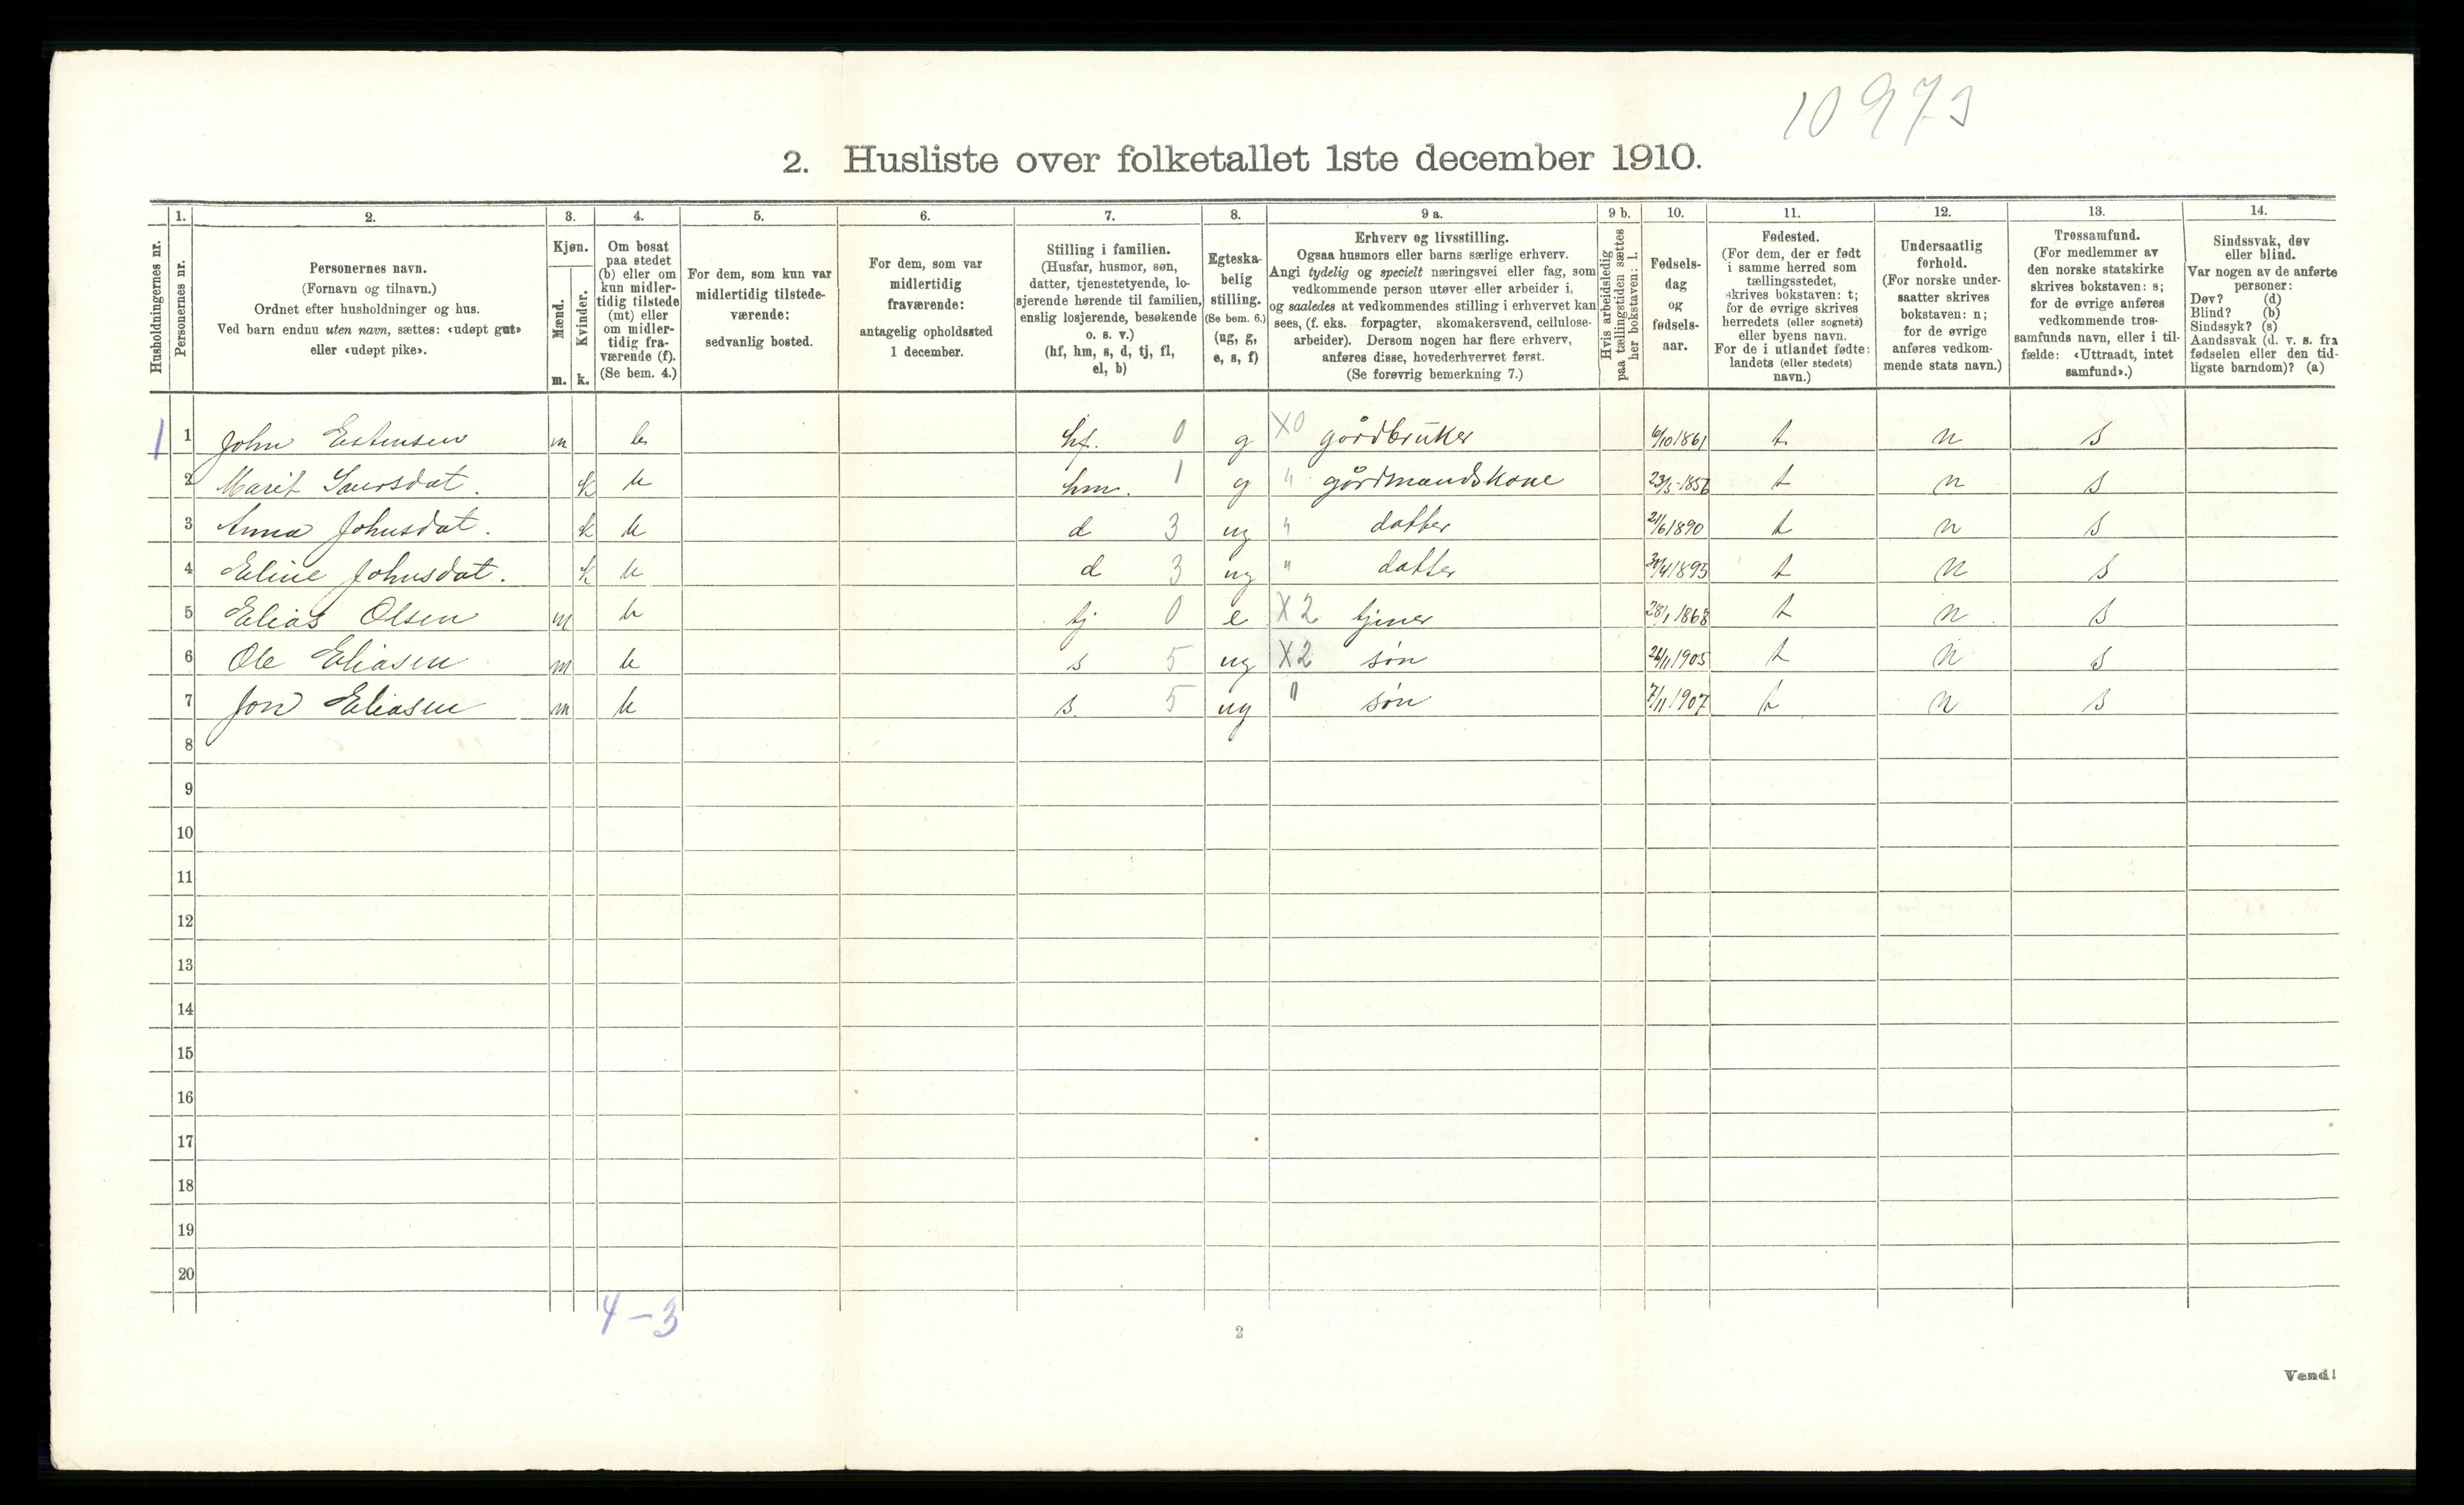 10973
2. Husliste over folketallet 1ste december 1910.
Husholdningernes nr.
1. Personernes nr.
2. Personernes navn. (Fornavn og tilnavn.) Ordnet efter husholdninger og hus. Ved barn endnu uten navn, sættes: «udøpt gut» eller «udøpt pike».
3. Kjøn. Mænd. m. Kvinder. k.
4. Om bosat paa stedet (b) eller om kun midler-tidig tilstede (mt) eller om midler-tidig fra-værende (f). (Se bem. 4.)
5. For dem, som kun var midlertidig tilstede-værende: sedvanlig bosted.
6. For dem, som var midlertidig fraværende: antagelig opholdssted 1 december.
7. Stilling i familien. (Husfar, husmor, søn, datter, tjenestetyende, lo-sjerende hørende til familien, enslig losjerende, besøkende o. s. v.) (hf, hm, s, d, tj, fl, el, b)
8. Egteska-belig stilling. (Se bem. 6.) (ug, g, e, s, f)
9 a. Erhverv og livsstilling. Ogsaa husmors eller barns særlige erhverv. Angi tydelig og specielt næringsvei eller fag, som vedkommende person utøver eller arbeider i, og saaledes at vedkommendes stilling i erhvervet kan sees, (f. eks. forpagter, skomakersvend, cellulose-arbeider). Dersom nogen har flere erhverv, anføres disse, hovederhvervet først. (Se forøvrig bemerkning 7.)
9 b. Hvis arbeidsledig paa tællingstiden sættes her bokstaven: l.
10. Fødsels-dag og fødsels-aar.
11. Fødested. (For dem, der er født i samme herred som tællingsstedet, skrives bokstaven: t; for de øvrige skrives herredets (eller sognets) eller byens navn. For de i utlandet fødte: landets (eller stedets) navn.)
12. Undersaatlig forhold. (For norske under-saatter skrives bokstaven: n; for de øvrige anføres vedkom-mende stats navn.)
13. Trossamfund. (For medlemmer av den norske statskirke skrives bokstaven: s; for de øvrige anføres vedkommende tros-samfunds navn, eller i til-fælde: «Uttraadt, intet samfund».)
14. Sindssvak, døv eller blind. Var nogen av de anførte personer: Døv? (d) Blind? (b) Sindssyk? (s) Aandssvak (d. v. s. fra fødselen eller den tid-ligste barndom)? (a)
1 1 John Estensen m b hf. 0 g X0 gårdbruker 6/10 1861 t n s
2 Marit Siversdat. k b hm. 1 g " gårdmandskone 23/3-1856 t n s
3 Anna Johnsdat. k b d 3 ug " datter 21/6 1890 t n s
4 Eline Johnsdat. k b d 3 ug " datter 30/4 1895 t n s
5 Elias Olsen m b tj 0 e X2 tjiner 28/1 1868 t n s
6 Ole Eliasen m b s 5 ug X2 søn 26/11 1905 t n s
7 Jon Eliasen m b s. 5 ug " søn 7/11 1907 t n s
8
9
10
11
12
13
14
15
16
17
18
19
20
4-3
2
Vend!